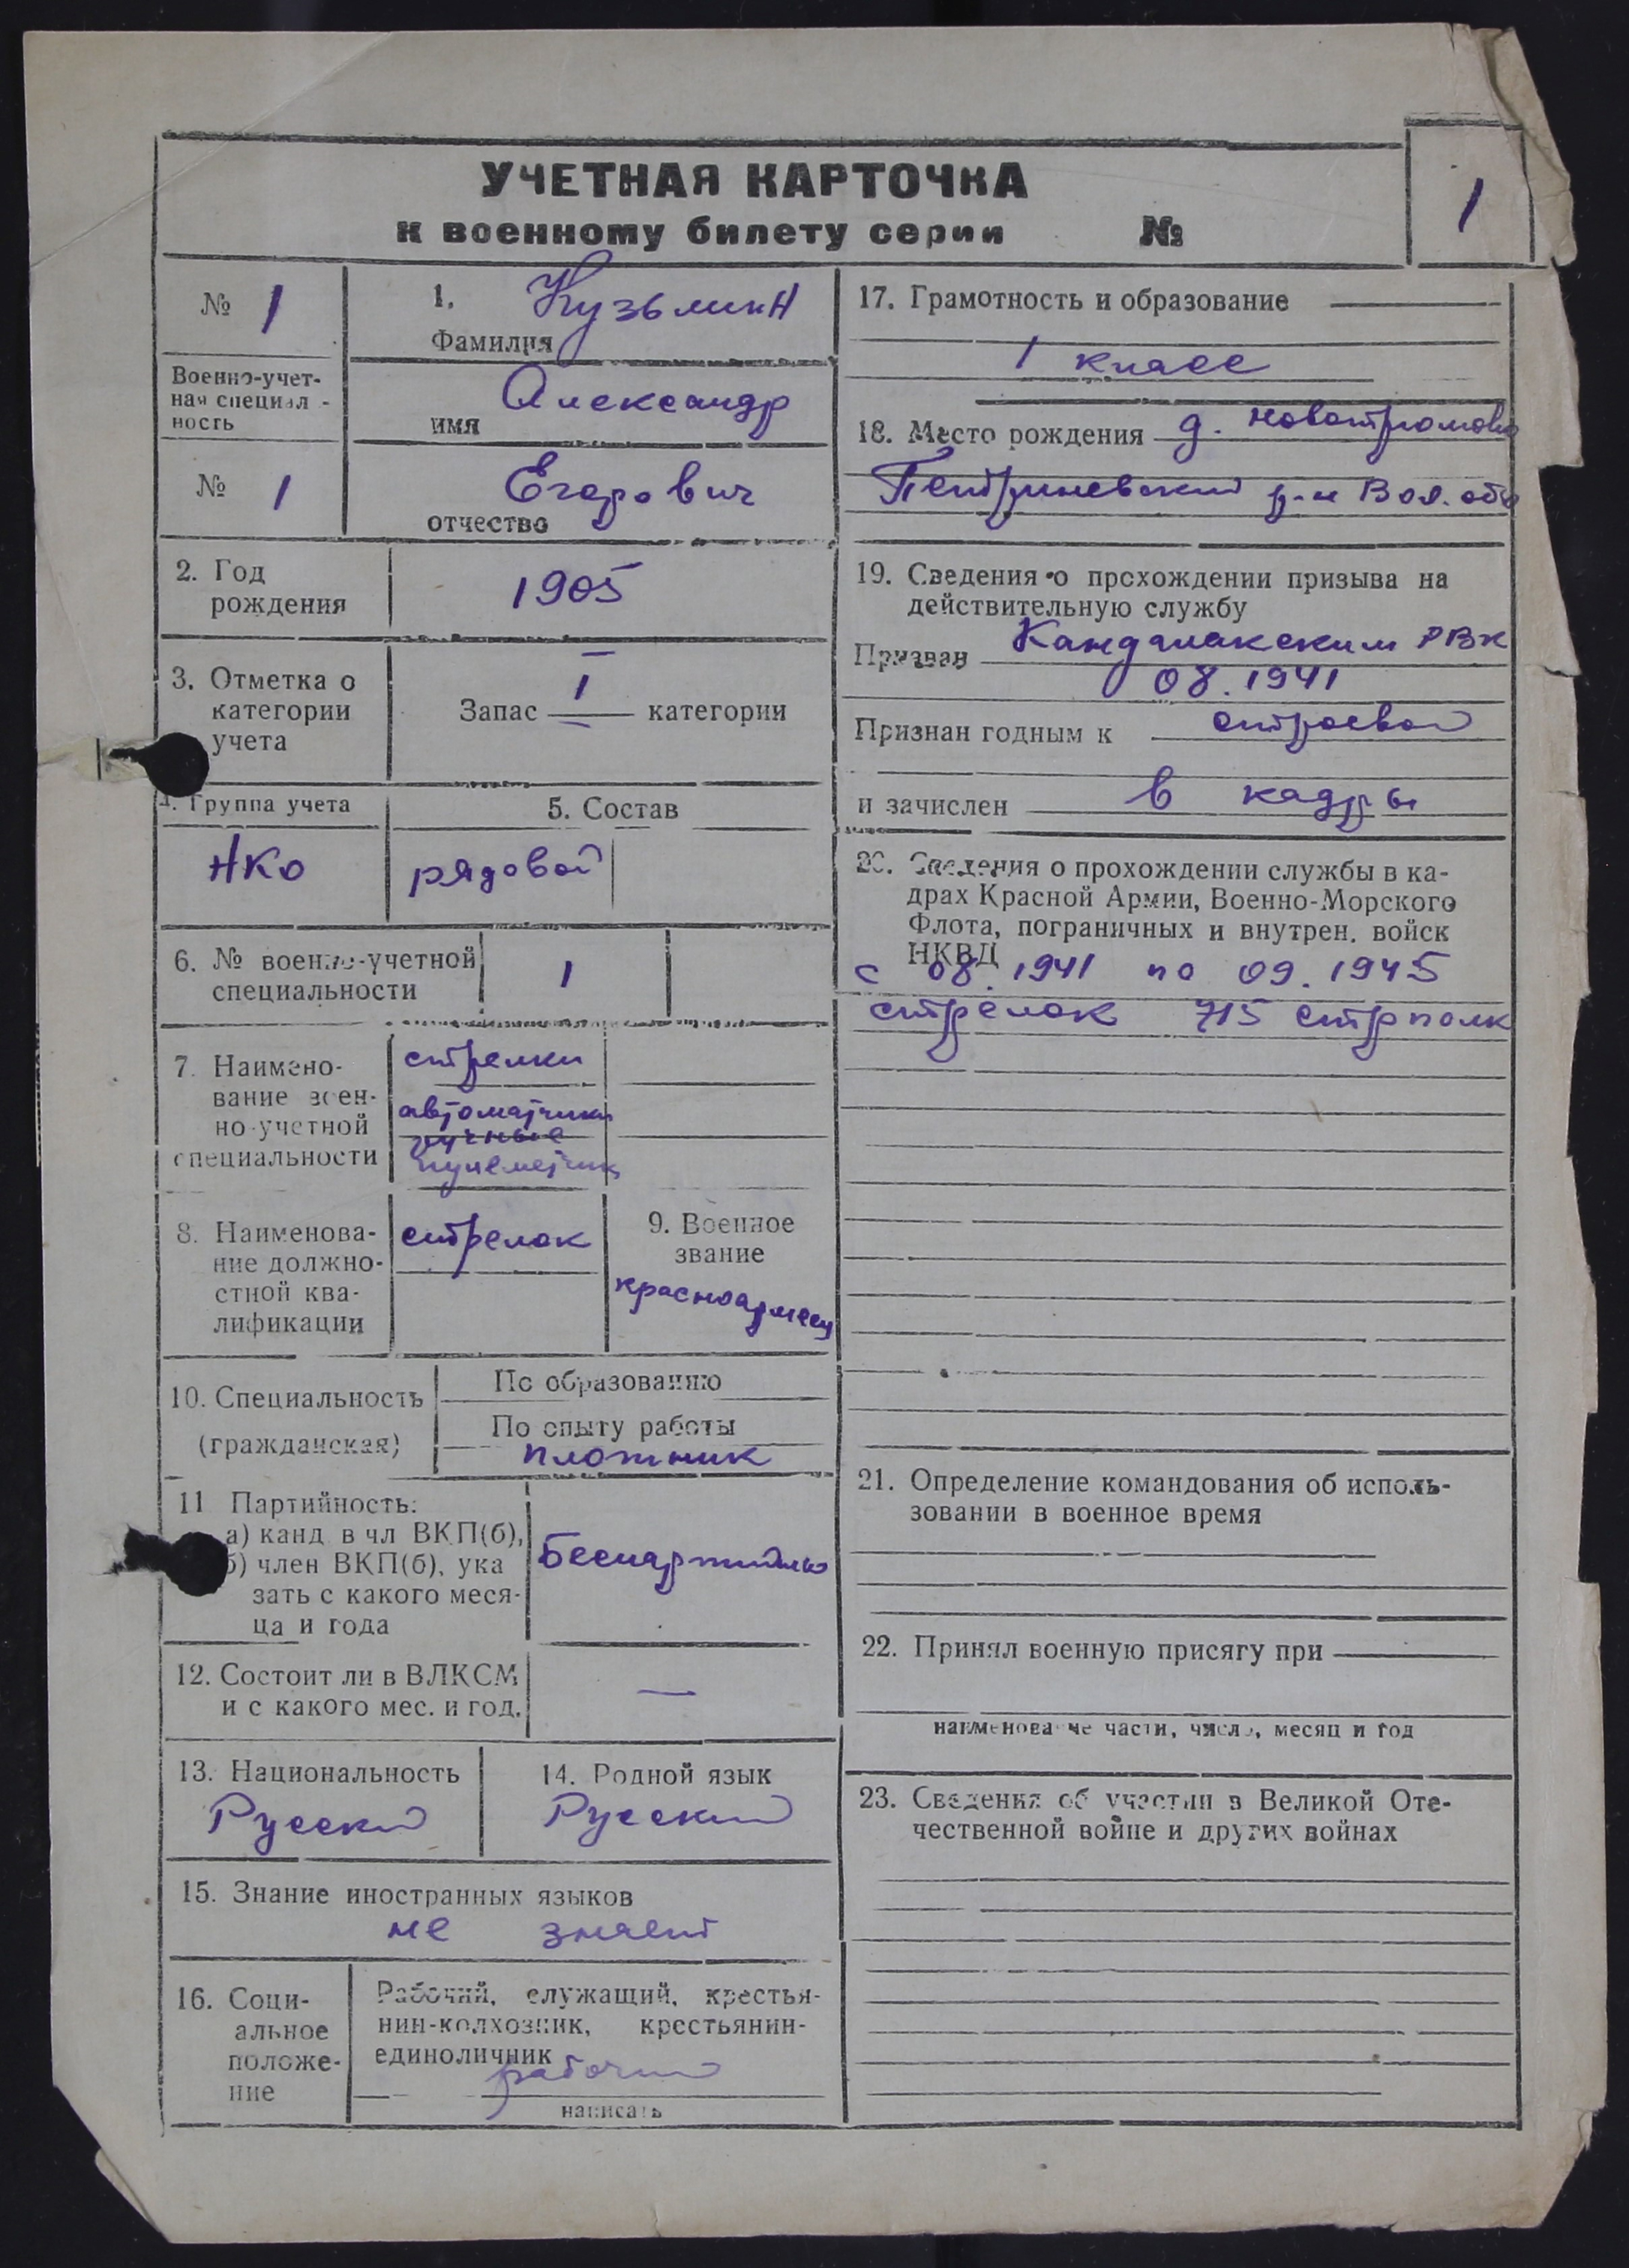 УЧЕТНАЯ КАРТОЧКА
к военному билету серии №
1
№ 1
1. Кузьмин
Фамилия
Военно-учет-
ная специал -
ность
Александр
имя
№ 1
Егорович
отчество
2. Год
рождения
1905
3. Отметка о
категории
учета
Запас I категории
4. Группа учета
5. Состав
НКО
рядовой
6. № военно-учетной
специальности
1
7. Наимено-
вание воен-
но-учетной
специальности
стрелки
автоматчики
ручные
пулеметчик
8. Наименова-
ние должно-
стной ква-
лификации
стрелок
9. Военное
звание
красноармеец
10. Специальность
(гражданская)
По образованию
По опыту работы
плотник
11 Партийность:
а) канд. в чл ВКП(б),
б) член ВКП(б), ука
зать с какого меся-
ца и года
Беспартийный
12. Состоит ли в ВЛКСМ
и с какого мес. и год.
—
13. Национальность
Русский
14. Родной язык
Русский
15. Знание иностранных языков
не знает
16. Соци-
альное
положе-
ние
Рабочий, служащий, крестья-
нин-колхозник, крестьянин-
единоличник
рабочий
написать
17. Грамотность и образование
1 класс
18. Место рождения д.
Петриневский р-н Вол. обл
19. Сведения о прохождении призыва на
действительную службу
Призван Кандалакским РВК
08.1941
Признан годным к строевой
и зачислен в кадры
20. Сведения о прохождении службы в ка-
драх Красной Армии, Военно-Морского
Флота, пограничных и внутрен. войск
НКВД
с 08.1941 по 09.1945
стрелок 715 стр полк
21. Определение командования об исполь-
зовании в военное время
22. Принял военную присягу при
наименование части, число, месяц и год
23. Сведения об участии в Великой Оте-
чественной войне и других войнах